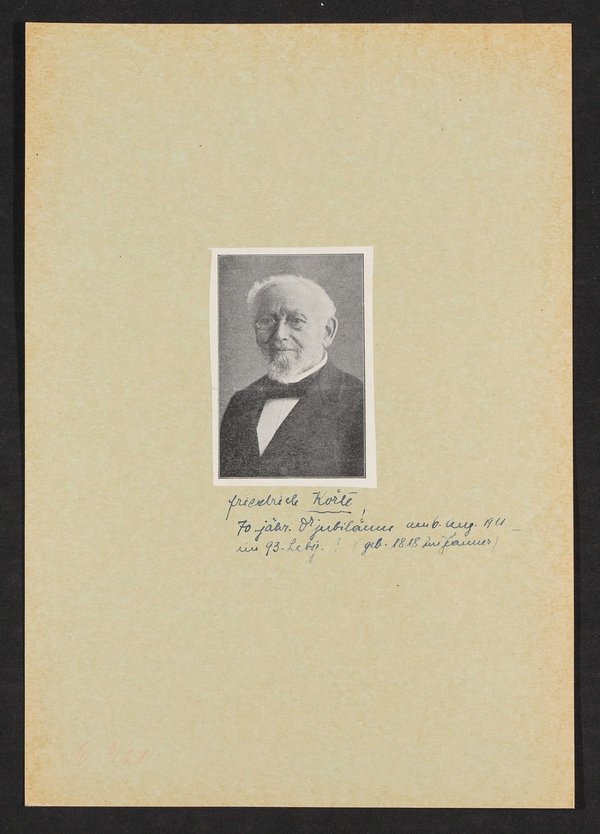 Friedrich Körte!
70-jähr. Drjubiläum am 6. Aug. 1911 –
im 93. Lebj.! (geb. 1818 im Januar)